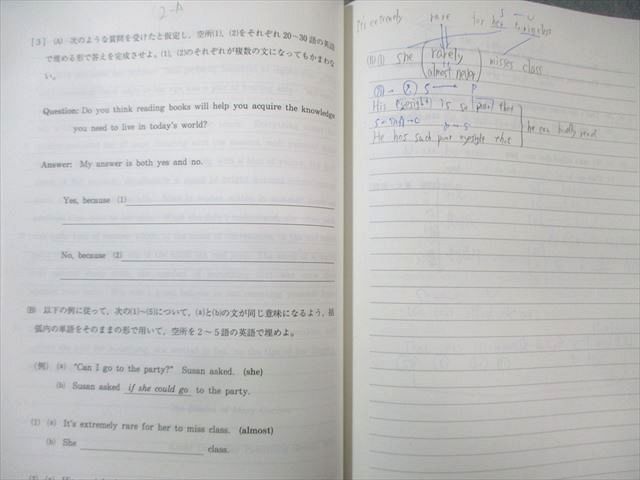 2-A
〔3〕(A) 次のような質問を受けたと仮定し，空所(1)，(2)をそれぞれ20～30語の英語
で埋める形で答えを完成させよ。(1)，(2)のそれぞれが複数の文になってもかまわな
い。
Question: Do you think reading books will help you acquire the knowledge
you need to live in today's world?
Answer: My answer is both yes and no.
Yes, because (1)
No, because (2)
(B) 以下の例に従って，次の(1)～(5)について，(a)と(b)の文が同じ意味になるよう，括
弧内の単語をそのままの形で用いて，空所を2～5語の英語で埋めよ。
(例) (a) "Can I go to the party?" Susan asked. (she)
(b) Susan asked if she could go to the party.
(1) (a) It's extremely rare for her to miss class. (almost)
(b) She class.
It's extremely rare for her
S V
(B)(1) she (rarely
almost never) misses class
His eyesight is so poor that
he can hardly read
He has such poor eyesight that